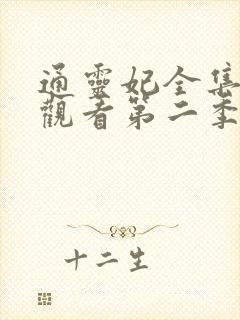 通靈妃全集
觀看第二季
十二生